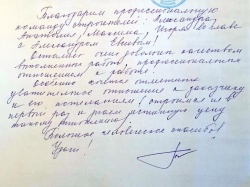 Благодарим профессиональную
команду строителей: Александра,
Анатолия, Максима, Игоря во главе
с Александром
Остались очень довольны качеством
выполненных работ, профессиональным
отношением к работе.
Особенно хочется отметить
уважительное отношение к заказчику
и его пожеланиям (строимся не в
первый раз и знаем истинную цену
такому отношению).
Большое человеческое спасибо!
Удачи!